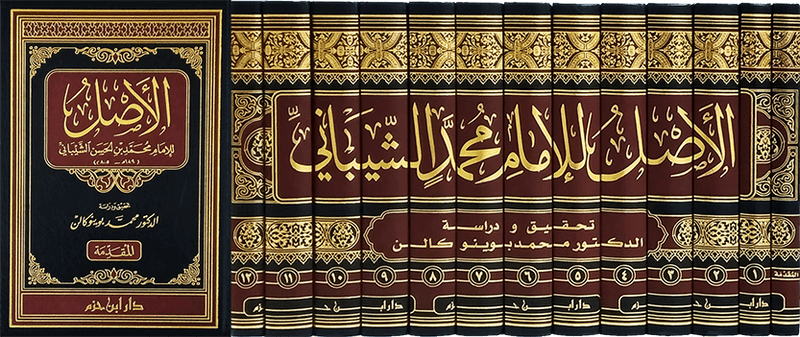 الأصل
للإمام محمد بن الحسن الشيباني
(١٨٩هـ - ٨٠٥م)
تحقيق ودراسة
الدكتور محمد بوينوكالن
المقدمة
دار ابن حزم
الأصل للإمام محمد الشيباني
تحقيق و دراسة
الدكتور محمد بوينو كالن
المقدمة ١ ٢ ٣ ٤ ٥ ٦ ٧ ٨ ٩ ١٠ ١١ ١٢
دار ابن حزم